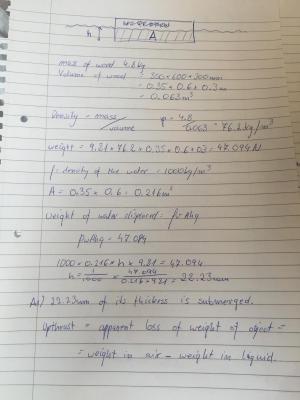 h
A
mass of wood 4.8kg
Volume of wood = 350 × 600 × 300mm
= 0.35 × 0.6 × 0.3m
= 0.063m³
Density = mass / volume ρ = 4.8 / 0.063 = 76.2kg/m³
weight = 9.81 × 76.2 × 0.35 × 0.6 × 0.3 = 47.094N
ρ = density of the water = 1000kg/m³
A = 0.35 × 0.6 = 0.216m²
Weight of water displaced = ρwAhg
ρwAhg = 47.094
1000 × 0.216 × h × 9.81 = 47.094
h = 1/1000 × 47.094/0.216×9.81 = 22.23mm
A1) 22.23mm of its thickness is submerged.
Upthrust = apparent loss of weight of object =
= weight in air - weight in liquid.